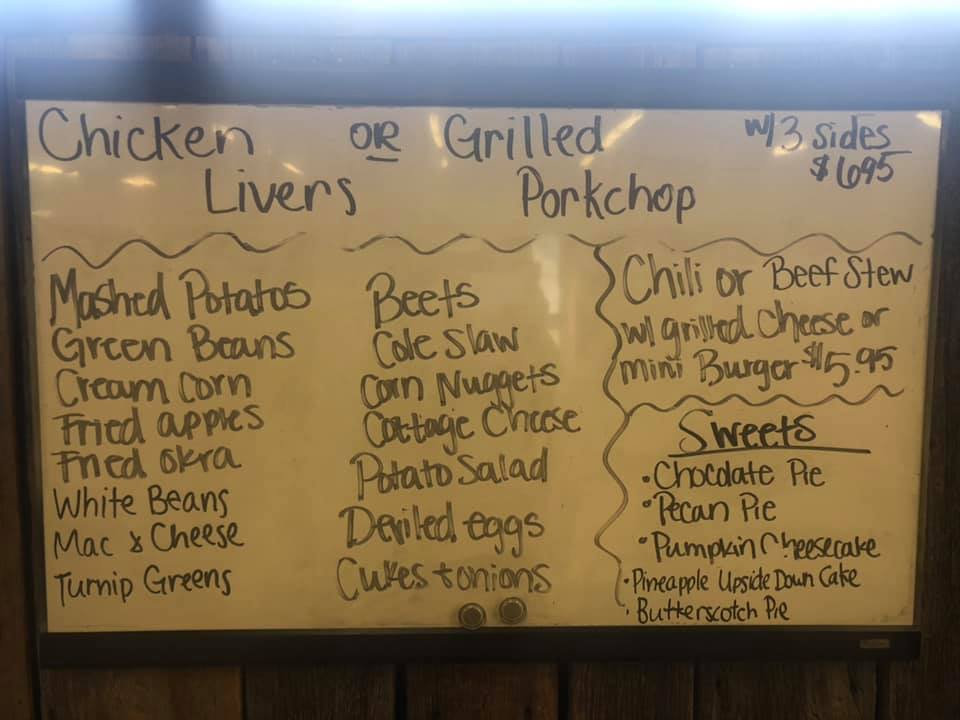 Chicken OR Grilled w/3 sides
Livers Porkchop $695
Mashed Potatos
Green Beans
Cream Corn
Fried apples
Fried okra
White Beans
Mac & Cheese
Turnip Greens
Beets
Cole Slaw
Corn Nuggets
Cottage Cheese
Potato Salad
Deviled eggs
Cukes + onions
Chili or Beef Stew
w/ grilled cheese or
mini Burger $5.95
Sweets
• Chocolate Pie
• Pecan Pie
• Pumpkin Cheesecake
• Pineapple Upside Down Cake
• Butterscotch Pie